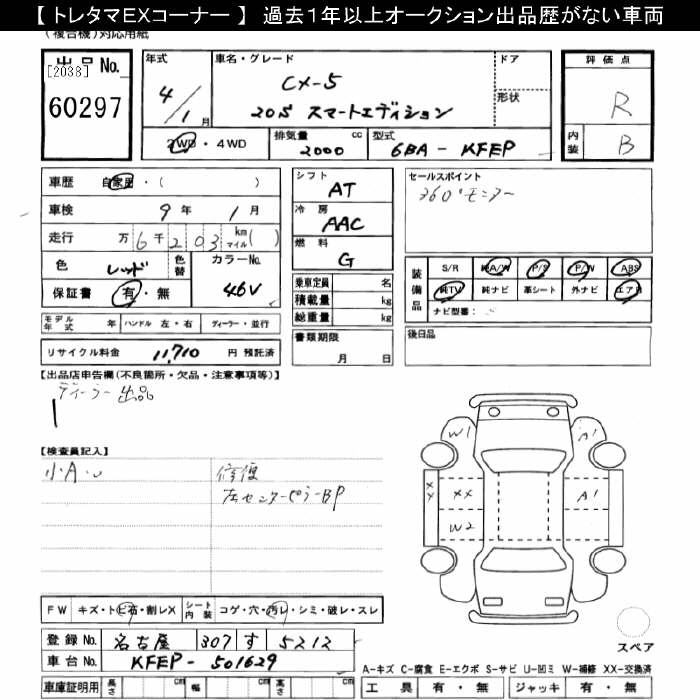 【トレタマEXコーナー】 過去1年以上オークション出品歴がない車両
(複合機)対応用紙
[2038]
出品 No.
60297
年式
4/1月
車名・グレード
CX-5
20S スマートエディション
ドア
形状
2WD・4WD
排気量 2000 cc
型式 6BA - KFEP
評価点
R
内装 B
車歴 自家用・( )
車検 9年 1月
走行 万6千203 km マイル( )
色 レッド
色替
カラーNo. 46V
保証書 有・無
モデル年式 年 ハンドル 左・右 ディーラー・並行
リサイクル料金 11,710 円 預託済
シフト AT
冷房 AAC
燃料 G
乗車定員 名
積載量 kg
総重量 kg
書類期限
月 日
セールスポイント
360°モニター
装備品
S/R 純A/W P/S P/W ABS
純TV 純ナビ 革シート 外ナビ エアB
ナビ型番:
後日品
【出品店申告欄(不良箇所・欠品・注意事項等)】
ディーラー出品
【検査員記入】
小A.U
修復
左センターピラーBP
W1 A1
XX XX A1
W2
FW キズ・トビ石・割レX シート内装 コゲ・穴・汚レ・シミ・破レ・スレ
登録 No. 名古屋 307 す 5212
車台 No. KFEP - 501629
車庫証明用 長さ cm 幅 cm 高さ cm
スペア
A-キズ C-腐食 E-エクボ S-サビ U-凹ミ W-補修 XX-交換済
工具 有・無 ジャッキ 有・無